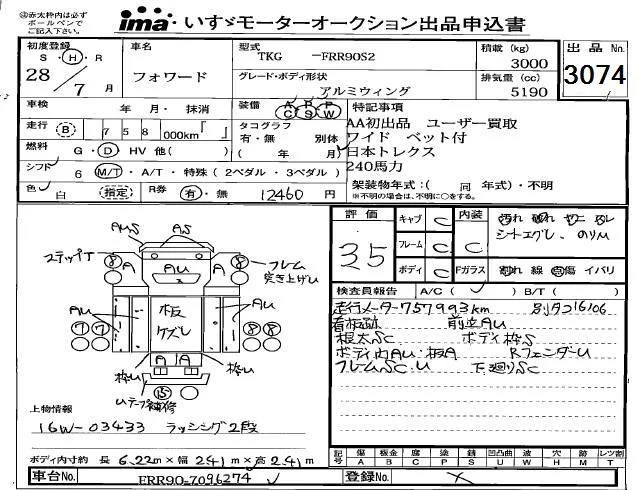 ㊟赤太枠内は必ず
ボールペンで
ご記入下さい。
ima いすゞモーターオークション出品申込書
初度登録 S・H・R 28/7月
車名 フォワード
型式 TKG -FRR90S2
グレード・ボディ形状 アルミウィング
積載 (kg) 3000
排気量 (cc) 5190
出品No. 3074
車検 年 月・抹消
装備 A/C P/S P/W
特記事項
走行 B 758 000km『 』
タコグラフ 有・無 別体 ( 年 月)
AA初出品 ユーザー買取
ワイド ベット付
燃料 G・D HV 他( )
日本トレクス
シフト 6 M/T・A/T・特殊(2ペダル・3ペダル)
240馬力
色 白 指定 R券 有・無 12460円
架装物年式:( 同 年式)・不明
※不明の場合は、不明に○をする。
評価 3.5
キャブ C
フレーム C
ボディ C
内装 C
シートエグレ、のりU
Fガラス 割れ 線 点傷 イバリ
検査員報告 A/C( ) B/T( )
走行メーター757993km
看板跡 前立AU
根太SC ボディ枠S
ボディ内AU・板A RフェンダーU
フレームSC.U 下廻りSC
AUS AS
ステップT 8 A AU A 8 フレーム突き上げU
AU 7 7 板ケズレ 8 8 AU
枠U A A 枠U
15
Uテープ補修
上物情報
16W-03433 ラッシング2段
ボディ内寸約 長 6.22m×幅 2.41m×高 2.41m
記号 傷 A 板金 B 腐食 C 補修 P 塗 S 錆 凹凸曲 U 波 W 穴 H 跡 M 歪 T レツ割
車台No. FRR90-7096274
登録No. ×